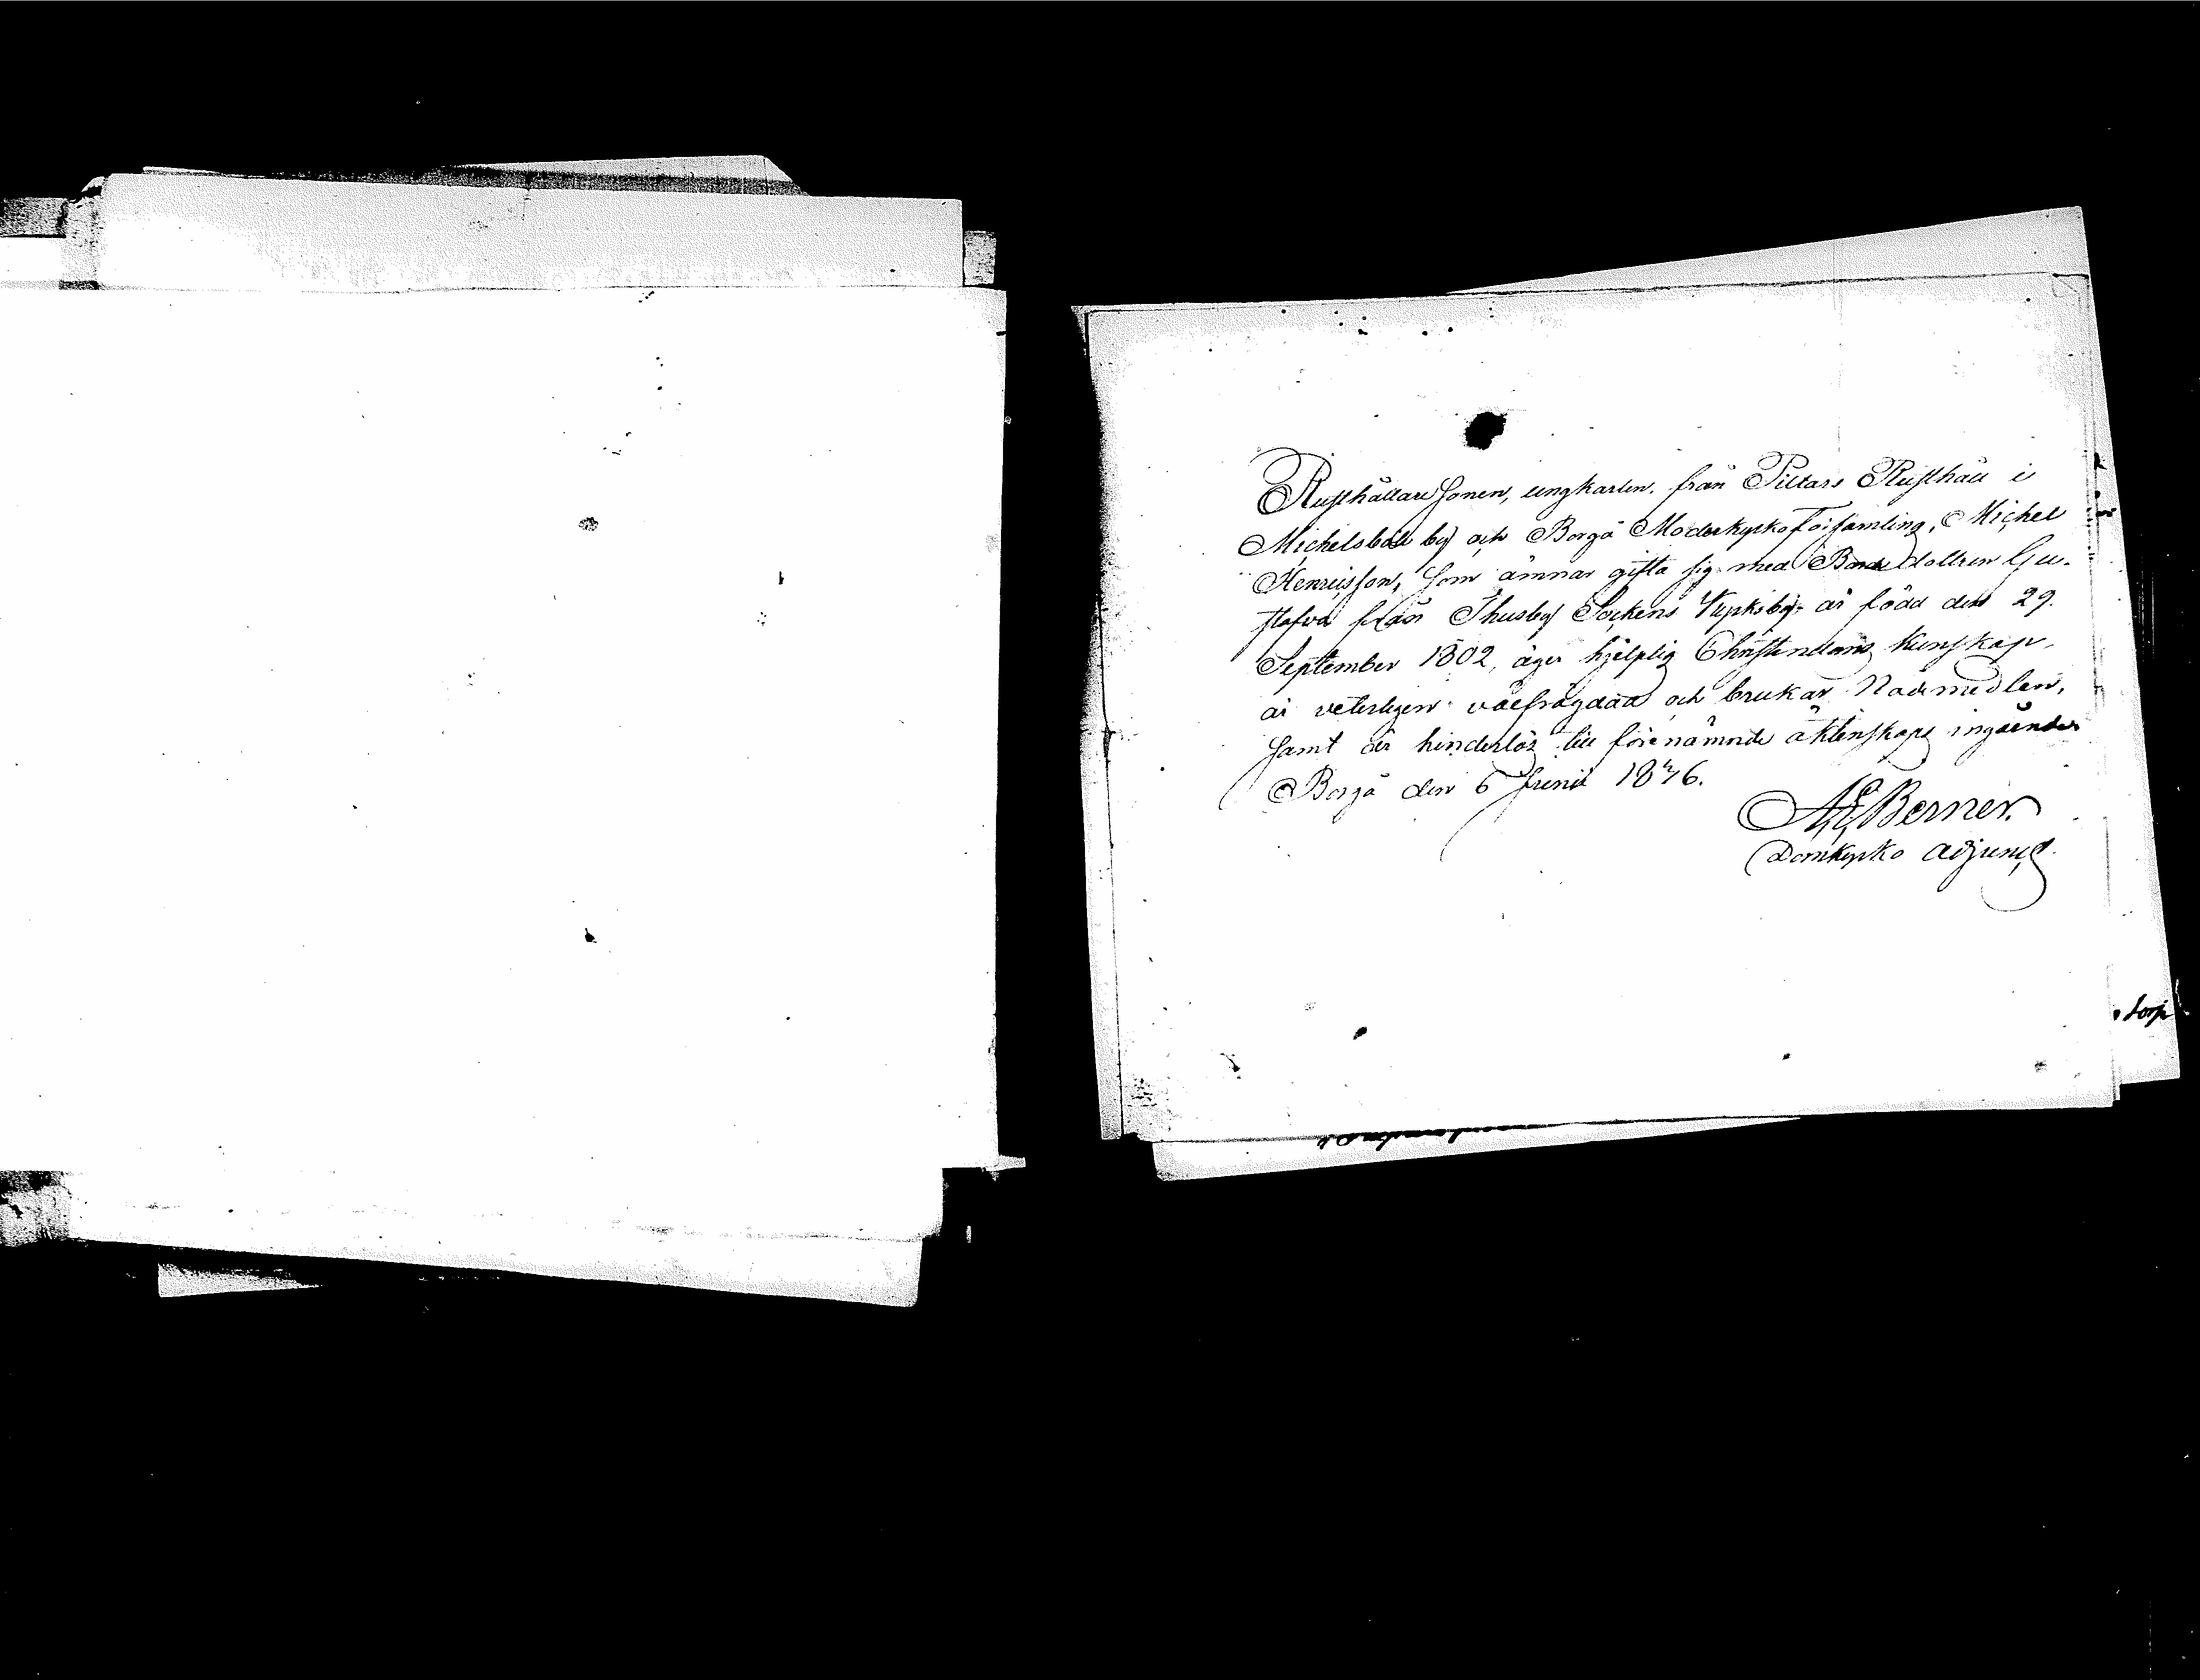 Rusthållare Sonen, ungkarlen, från Pillars Rusthåll i
Michelsböle by och Borgå Moderkyrko Församling, Michel
Henricsson, som ämnar gifta sig med Bonde dottren Gu-
stafva från Thusby Sockens by, är född den 29.
September 1802, äger hjelplig Christendoms kunskap,
är veterligen välfrägdad och brukar Nademedlen,
samt är hinderlös till förenämnde äktenskaps ingående
Borgå den 6 Junii
Berner.
Domkyrko Adjunct.